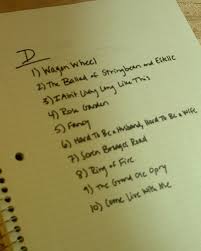 D
1) Wagon Wheel
2) The Ballad of Stringbean and Estelle
3) I Ain't Living Long Like This
4) Rose Garden
5) Fancy
6) Hard To Be a Husband, Hard To Be a Wife
7) Seven Bridges Road
8) Ring of Fire
9) The Grand Ole Opry
10) Come Live With Me